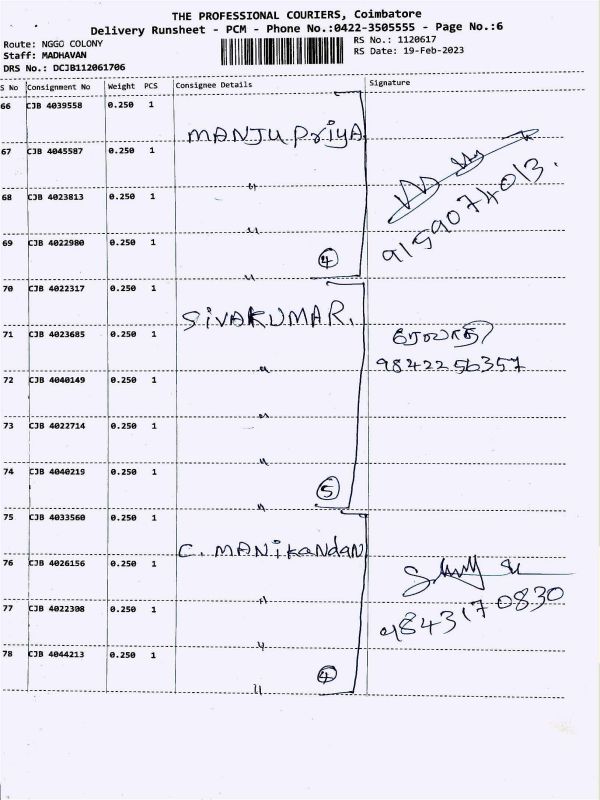 THE PROFESSIONAL COURIERS, Coimbatore
Delivery Runsheet - PCM - Phone No.:0422-3505555 - Page No.:6
Route: NGGO COLONY
Staff: MADHAVAN
DRS No.: DCJB112061706
RS No.: 1120617
RS Date: 19-Feb-2023
S No Consignment No Weight PCS Consignee Details Signature
66 CJB 4039558 0.250 1
MANJU PriyA
67 CJB 4045587 0.250 1 "
68 CJB 4023813 0.250 1 "
9159074013.
69 CJB 4022980 0.250 1 " 4
70 CJB 4022317 0.250 1
SiVAKUMAR.
71 CJB 4023685 0.250 1 " ரேவதி
9842256357
72 CJB 4040149 0.250 1 "
73 CJB 4022714 0.250 1 "
74 CJB 4040219 0.250 1 " 5
75 CJB 4033560 0.250 1
C. MANikaNdaN
76 CJB 4026156 0.250 1 "
9843170830
77 CJB 4022308 0.250 1 "
78 CJB 4044213 0.250 1 " 4